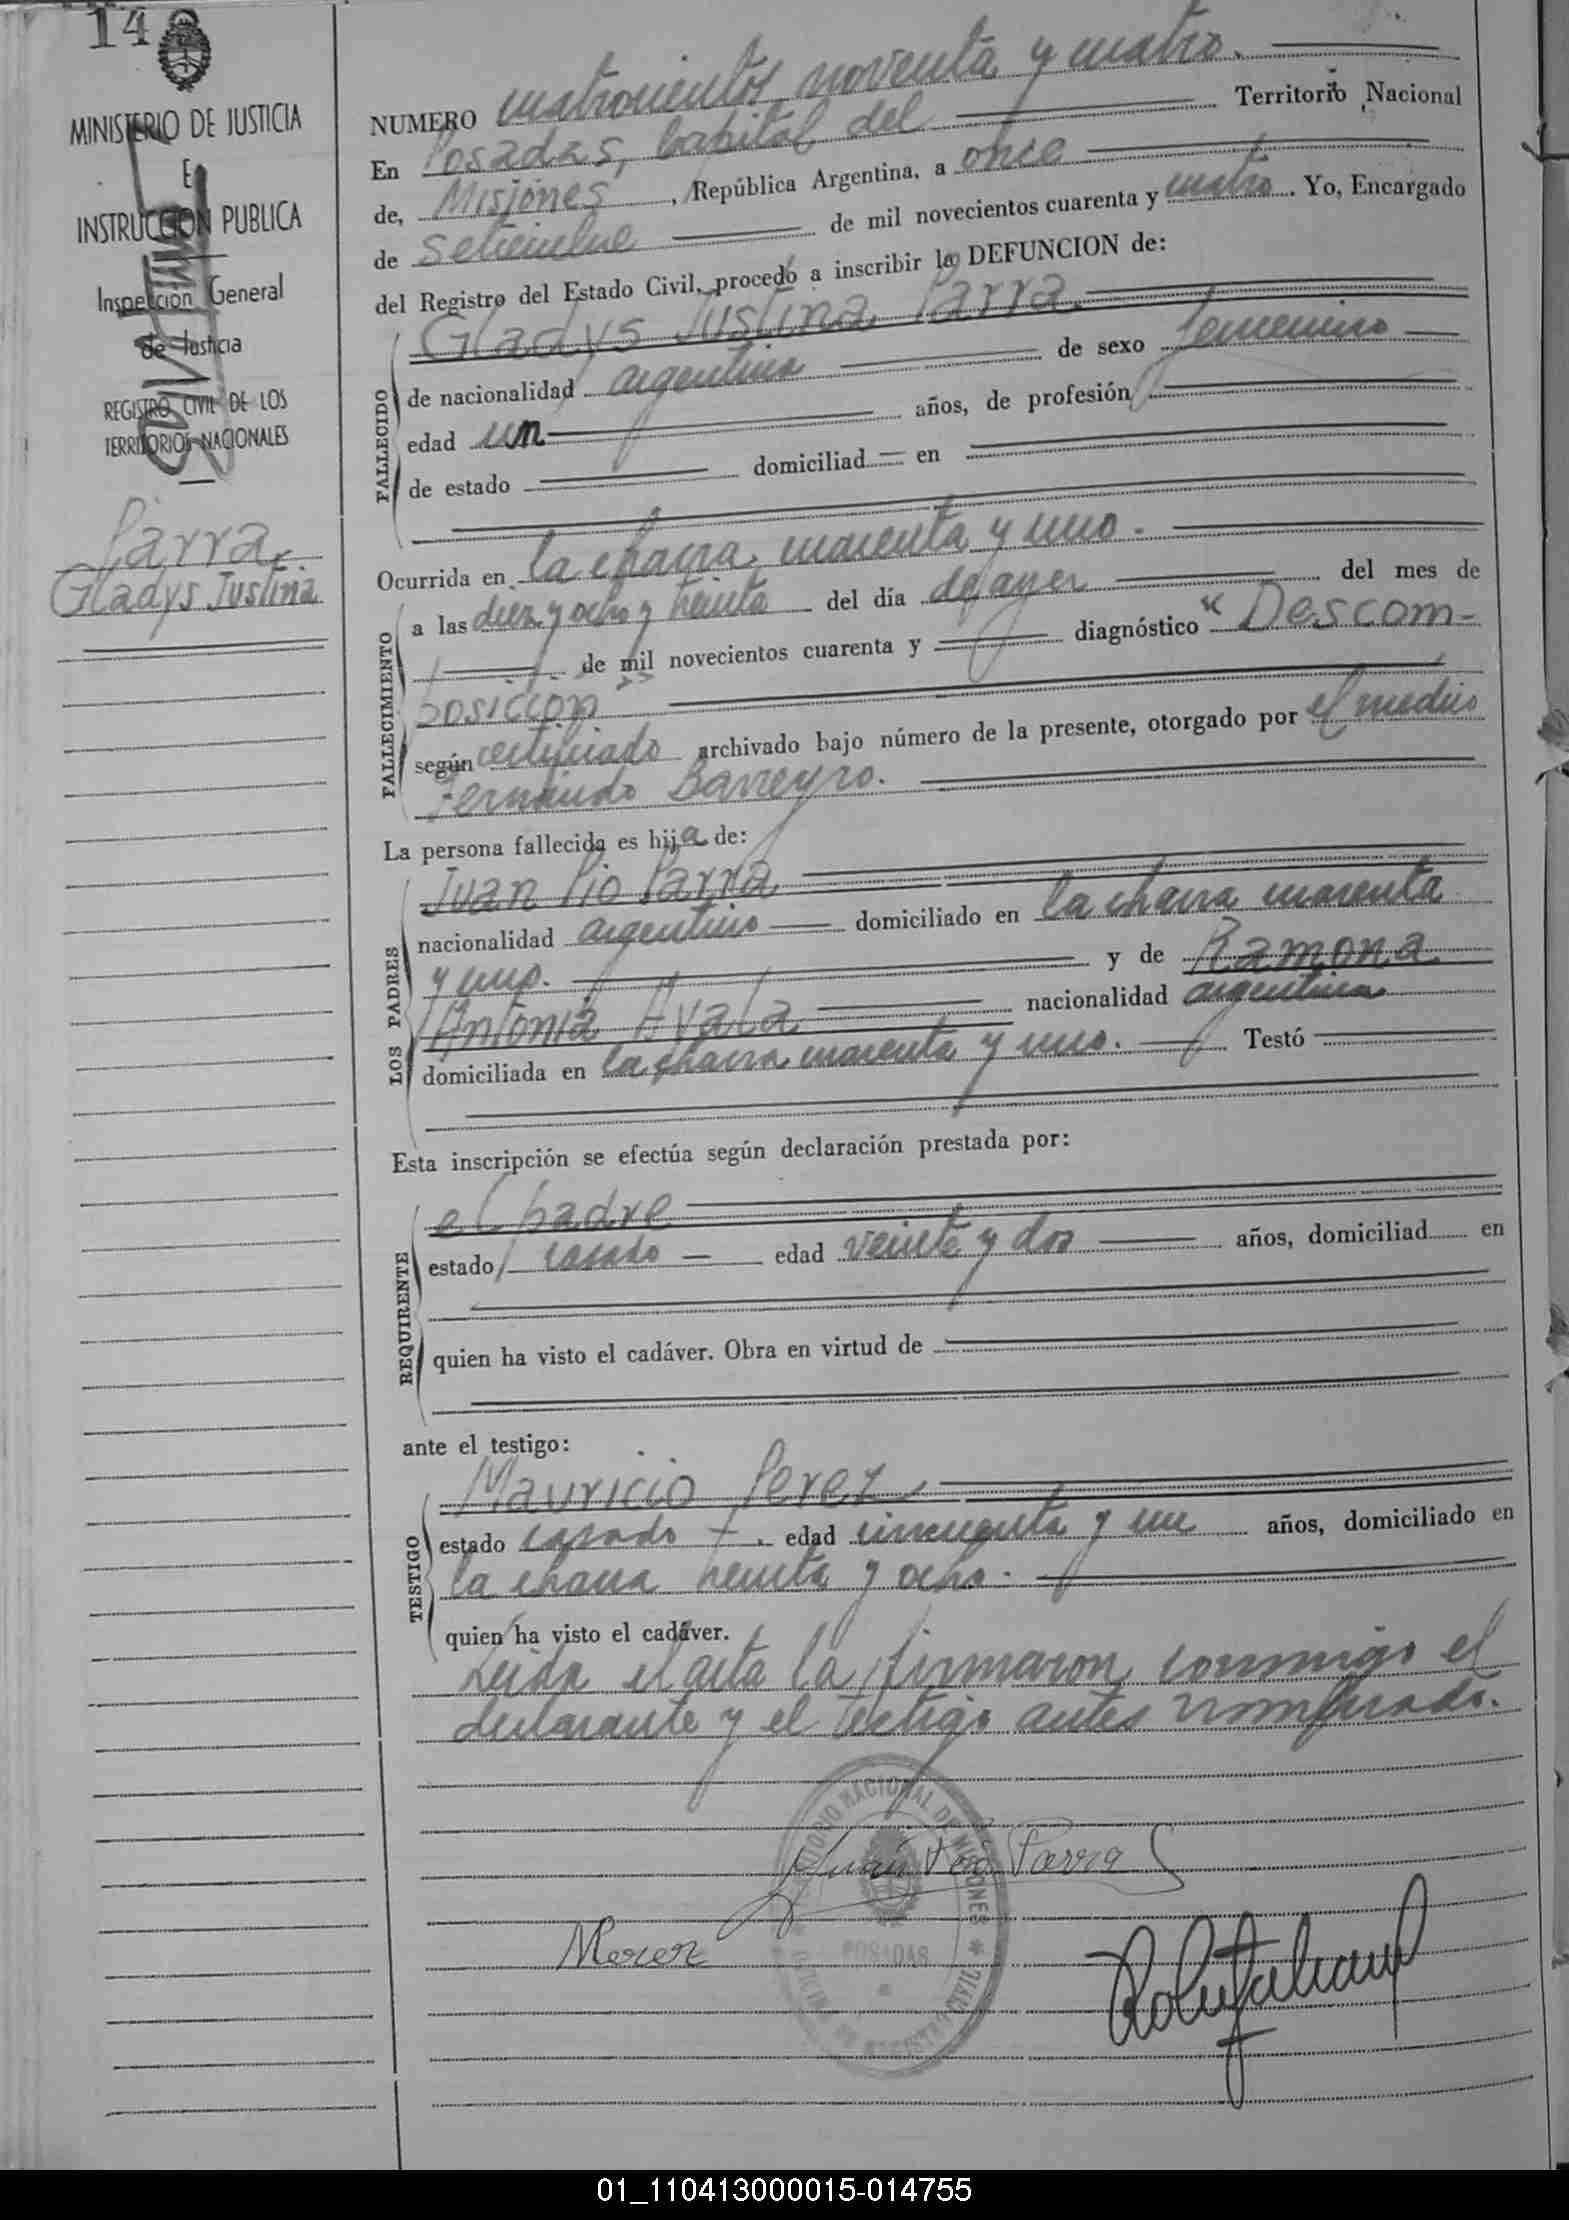 14
MINISTERIO DE JUSTICIA
E
INSTRUCCION PUBLICA
Inspección General
de Justicia
REGISTRO CIVIL DE LOS
TERRITORIOS NACIONALES
Parra
Gladys Justina
NUMERO cuatrocientos noventa y cuatro.
En Posadas, Capital del Territorio Nacional
de, Misiones, República Argentina, a once
de Setiembre de mil novecientos cuarenta y cuatro. Yo, Encargado
del Registro del Estado Civil, procedo a inscribir la DEFUNCION de:
Gladys Justina Parra
FALLECIDO
de nacionalidad argentina de sexo femenino
edad un años, de profesión
de estado domiciliad en
Ocurrida en la chacra cuarenta y uno.
FALLECIMIENTO
a las diez y ocho y treinta del día de ayer del mes de
de mil novecientos cuarenta y diagnóstico "Descom-
posición"
según certificado archivado bajo número de la presente, otorgado por el médico
Fernando Barreyro.
La persona fallecida es hija de:
LOS PADRES
Juan Pio Parra
nacionalidad argentino domiciliado en la chacra cuarenta
y uno. y de Ramona
Antonia Ayala nacionalidad argentina
domiciliada en la chacra cuarenta y uno. Testó
Esta inscripción se efectúa según declaración prestada por:
REQUIRENTE
el padre
estado casado edad veinte y dos años, domiciliad en
quien ha visto el cadáver. Obra en virtud de
ante el testigo:
TESTIGO
Mauricio Perez
estado casado edad cincuenta y un años, domiciliado en
la chacra treinta y ocho.
quien ha visto el cadáver.
Leida el acta la firmaron conmigo el
declarante y el testigo antes nombrado.
TERRITORIO NACIONAL DE MISIONES
POSADAS
Juan Pio Parra
MPerez
01_110413000015-014755